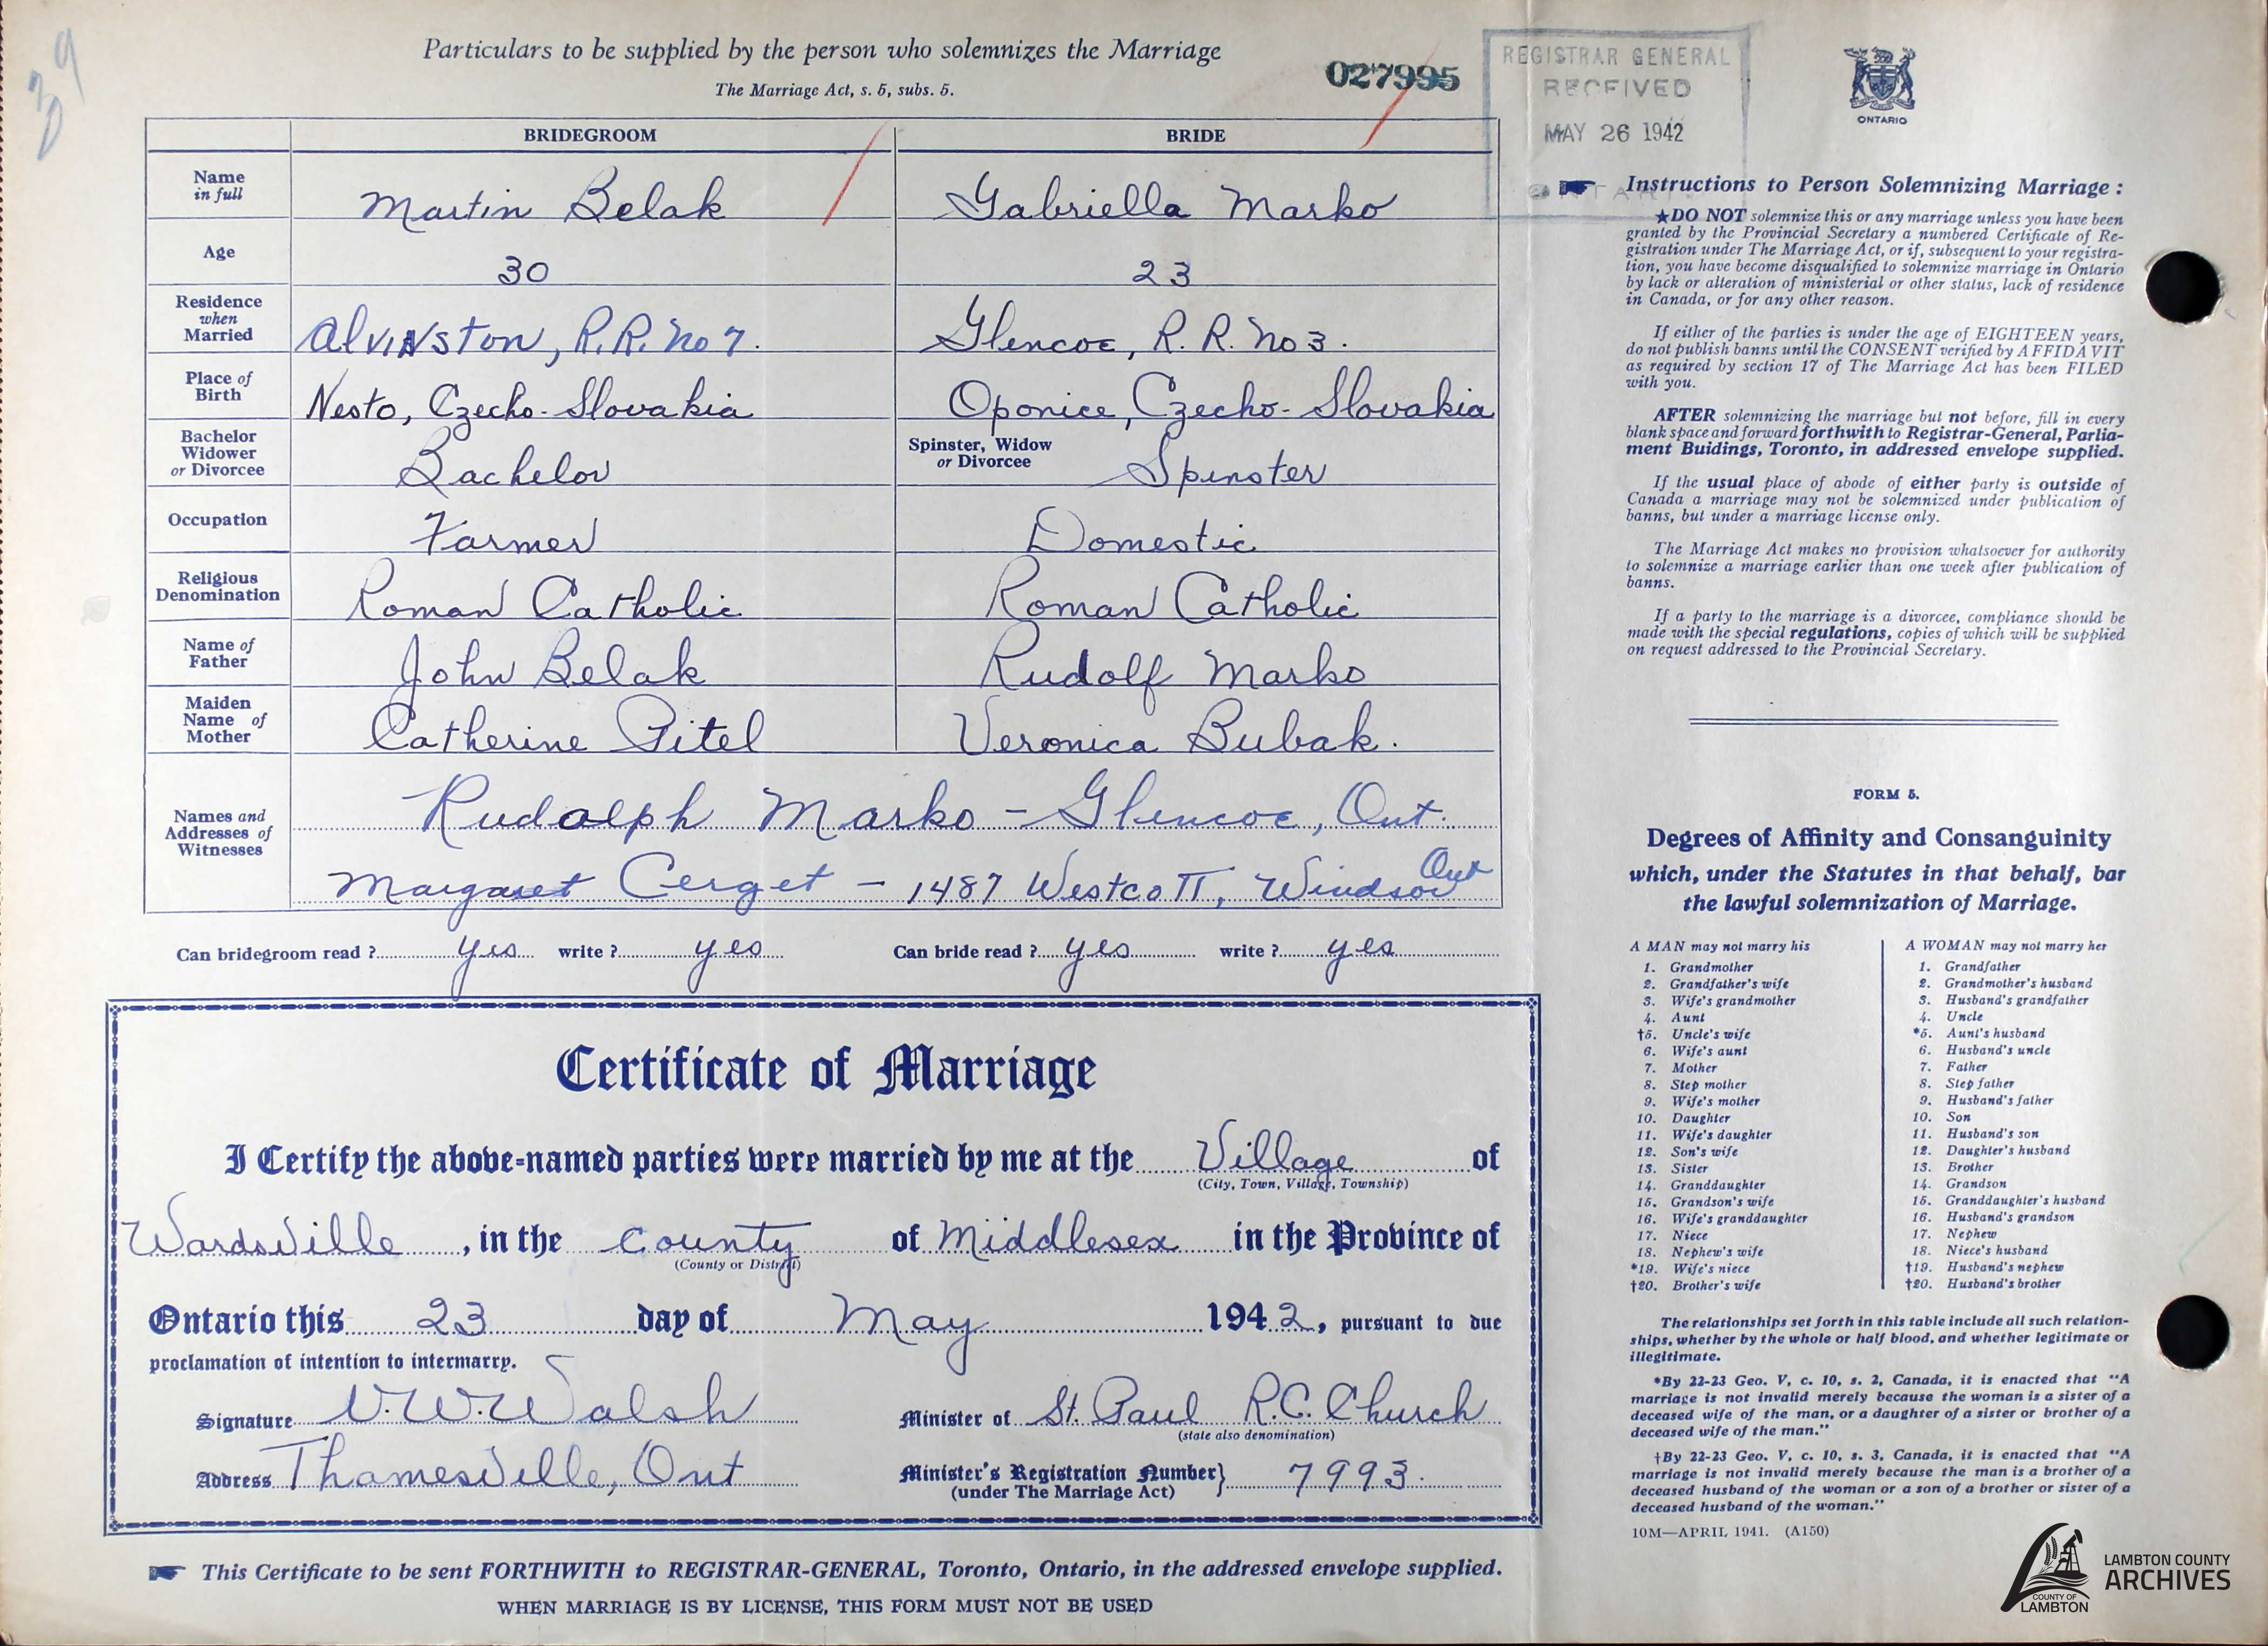 39
Particulars to be supplied by the person who solemnizes the Marriage
The Marriage Act, s. 5, subs. 5.
027995
REGISTRAR GENERAL
RECEIVED
MAY 26 1942
ONTARIO
BRIDEGROOM BRIDE
Name in full Martin Belak Gabriella Marko
Age 30 23
Residence when Married Alvinston, R.R. No 7. Glencoe, R. R. No 3.
Place of Birth Nesto, Czecho-Slovakia Oponice, Czecho-Slovakia
Bachelor Widower or Divorcee Bachelor Spinster, Widow or Divorcee Spinster
Occupation Farmer Domestic
Religious Denomination Roman Catholic Roman Catholic
Name of Father John Belak Rudolf Marko
Maiden Name of Mother Catherine Pitel Veronica Bubak.
Names and Addresses of Witnesses Rudolph Marko - Glencoe, Ont.
Margaret Cerget - 1487 Westcott, Windsor Ont
Can bridegroom read? yes write? yes Can bride read? yes write? yes
Certificate of Marriage
I Certify the above-named parties were married by me at the Village of
(City, Town, Village, Township)
Wardsville, in the County of Middlesex in the Province of
(County or District)
Ontario this 23 day of May 1942, pursuant to due
proclamation of intention to intermarry.
Signature V. W. Walsh Minister of St. Paul R.C. Church
(state also denomination)
Address Thamesville, Ont Minister's Registration Number} 7993.
(under The Marriage Act)
This Certificate to be sent FORTHWITH to REGISTRAR-GENERAL, Toronto, Ontario, in the addressed envelope supplied.
WHEN MARRIAGE IS BY LICENSE, THIS FORM MUST NOT BE USED
ONTARIO
Instructions to Person Solemnizing Marriage:
★DO NOT solemnize this or any marriage unless you have been
granted by the Provincial Secretary a numbered Certificate of Re-
gistration under The Marriage Act, or if, subsequent to your registra-
tion, you have become disqualified to solemnize marriage in Ontario
by lack or alteration of ministerial or other status, lack of residence
in Canada, or for any other reason.
If either of the parties is under the age of EIGHTEEN years,
do not publish banns until the CONSENT verified by AFFIDAVIT
as required by section 17 of The Marriage Act has been FILED
with you.
AFTER solemnizing the marriage but not before, fill in every
blank space and forward forthwith to Registrar-General, Parlia-
ment Buidings, Toronto, in addressed envelope supplied.
If the usual place of abode of either party is outside of
Canada a marriage may not be solemnized under publication of
banns, but under a marriage license only.
The Marriage Act makes no provision whatsoever for authority
to solemnize a marriage earlier than one week after publication of
banns.
If a party to the marriage is a divorcee, compliance should be
made with the special regulations, copies of which will be supplied
on request addressed to the Provincial Secretary.
FORM 5.
Degrees of Affinity and Consanguinity
which, under the Statutes in that behalf, bar
the lawful solemnization of Marriage.
A MAN may not marry his
1. Grandmother
2. Grandfather's wife
3. Wife's grandmother
4. Aunt
†5. Uncle's wife
6. Wife's aunt
7. Mother
8. Step mother
9. Wife's mother
10. Daughter
11. Wife's daughter
12. Son's wife
13. Sister
14. Granddaughter
15. Grandson's wife
16. Wife's granddaughter
17. Niece
18. Nephew's wife
*19. Wife's niece
†20. Brother's wife
A WOMAN may not marry her
1. Grandfather
2. Grandmother's husband
3. Husband's grandfather
4. Uncle
*5. Aunt's husband
6. Husband's uncle
7. Father
8. Step father
9. Husband's father
10. Son
11. Husband's son
12. Daughter's husband
13. Brother
14. Grandson
15. Granddaughter's husband
16. Husband's grandson
17. Nephew
18. Niece's husband
†19. Husband's nephew
†20. Husband's brother
The relationships set forth in this table include all such relation-
ships, whether by the whole or half blood, and whether legitimate or
illegitimate.
*By 22-23 Geo. V, c. 10, s. 2, Canada, it is enacted that "A
marriage is not invalid merely because the woman is a sister of a
deceased wife of the man, or a daughter of a sister or brother of a
deceased wife of the man."
†By 22-23 Geo. V, c. 10, s. 3, Canada, it is enacted that "A
marriage is not invalid merely because the man is a brother of a
deceased husband of the woman or a son of a brother or sister of a
deceased husband of the woman."
10M—APRIL 1941. (A150)
COUNTY OF
LAMBTON
LAMBTON COUNTY
ARCHIVES